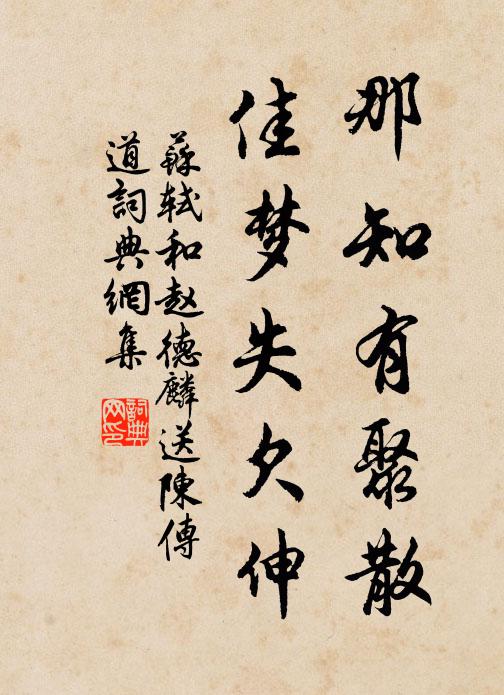 那知有聚散
佳梦失欠伸
蘇轼和赵德麟送陳傳
道詞典網集
詞典
网印